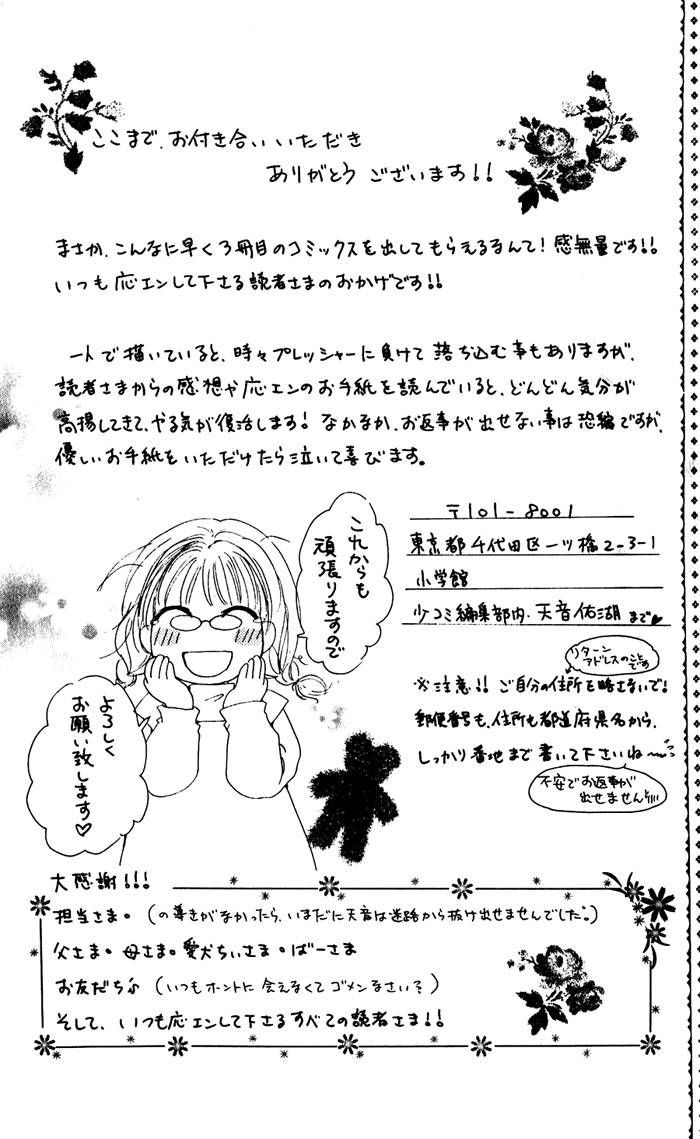 ここまで、お付き合いいただき
ありがとう ございます!!
まさか、こんなに早く3冊目のコミックスを出してもらえるなんて!感無量です!!
いつも応エンして下さる読者さまのおかげです!!
一人で描いていると、時々プレッシャーに負けて落ち込む事もありますが、
読者さまからの感想や応エンのお手紙を読んでいると、どんどん気分が
高揚してきて、やる気が復活します!なかなか、お返事が出せない事は恐縮ですが、
優しいお手紙をいただけたら泣いて喜びます。
これからも
頑張りますので
よろしく
お願い致します♡
〒101-8001
東京都千代田区一ツ橋2-3-1
小学館
少コミ編集部内・天音佑湖まで♥
リターン
アドレスのこと
です
※注意!!ご自分の住所を略さないで!
郵便番号も、住所も都道府県名から、
しっかり番地まで書いて下さいね〜
不安でお返事が
出せません!!!!
大感謝!!!
担当さま。(の導きがなかったら、いまだに天音は迷路から抜け出せませんでした。)
父さま。母さま。愛犬ちぃさま。ばーさま
お友だち♪(いつもホントに会えなくてゴメンなさい?)
そして、いつも応エンして下さるすべての読者さま!!